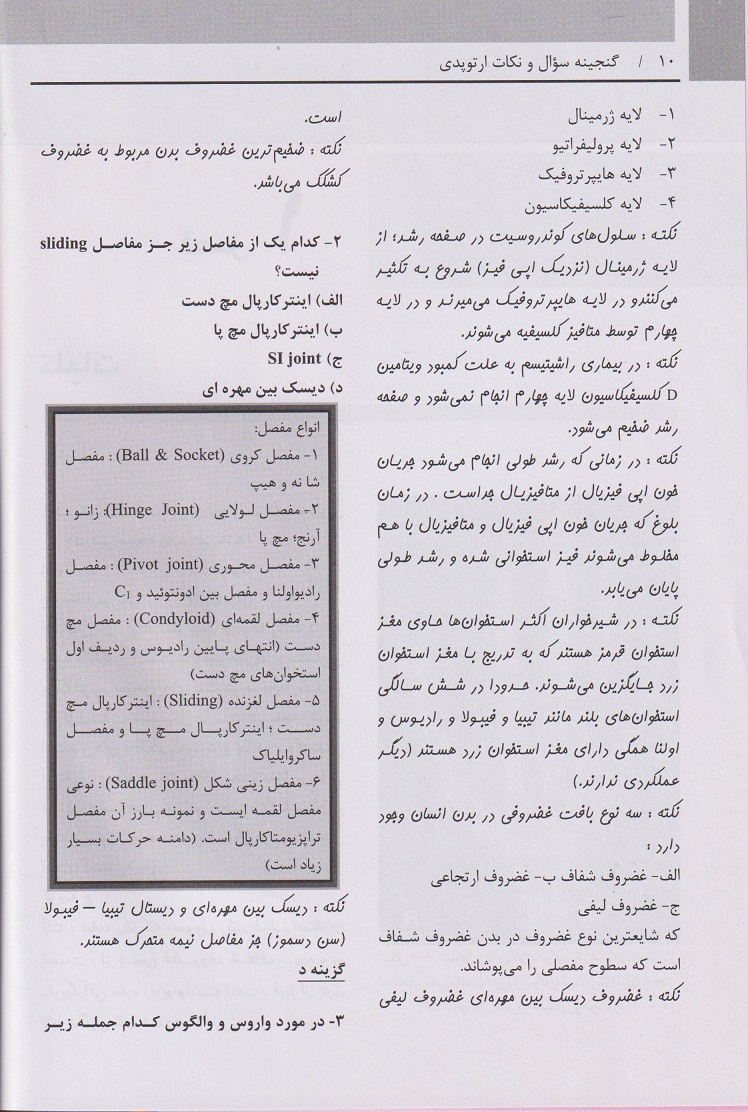 ۱۰ / گنجینه سؤال و نکات ارتوپدی
۱- لایه ژرمینال
۲- لایه پرولیفراتیو
۳- لایه هایپرتروفیک
۴- لایه کلسیفیکاسیون
نکته : سلول‌های کوندروسیت در صفحه رشد؛ از
لایه ژرمینال (نزدیک اپی فیز) شروع به تکثیر
می‌کنندو در لایه هایپرتروفیک می‌میرند و در لایه
چهارم توسط متافیز کلسیفیه می‌شوند.
نکته : در بیماری راشیتیسم به علت کمبود ویتامین
D کلسیفیکاسیون لایه چهارم انجام نمی‌شود و صفحه
رشد ضخیم می‌شود.
نکته : در زمانی که رشد طولی انجام می‌شود جریان
خون اپی فیزیال از متافیزیال جداست . در زمان
بلوغ که جریان خون اپی فیزیال و متافیزیال با هم
مخلوط می‌شوند فیز استخوانی شده و رشد طولی
پایان می‌یابد.
نکته : در شیرخواران اکثر استخوان‌ها حاوی مغز
استخوان قرمز هستند که به تدریج با مغز استخوان
زرد جایگزین می‌شوند. حدودا در شش سالگی
استخوان‌های بلند مانند تیبیا و فیبولا و رادیوس و
اولنا همگی دارای مغز استخوان زرد هستند (دیگر
عملکردی ندارند.)
نکته : سه نوع بافت غضروفی در بدن انسان وجود
دارد :
الف- غضروف شفاف ب- غضروف ارتجاعی
ج- غضروف لیفی
که شایعترین نوع غضروف در بدن غضروف شفاف
است که سطوح مفصلی را می‌پوشاند.
نکته : غضروف دیسک بین مهره‌ای غضروف لیفی
است.
نکته : ضخیم‌ترین غضروف بدن مربوط به غضروف
کشکک می‌باشد.
۲- کدام یک از مفاصل زیر جز مفاصل sliding
نیست؟
الف) اینترکارپال مچ دست
ب) اینترکارپال مچ پا
ج) SI joint
د) دیسک بین مهره ای
انواع مفصل:
۱- مفصل کروی (Ball & Socket) : مفصل
شا نه و هیپ
۲- مفصل لولایی (Hinge Joint): زانو ؛
آرنج؛ مچ پا
۳- مفصل محوری (Pivot joint) : مفصل
رادیواولنا و مفصل بین ادونتوئید و C1
۴- مفصل لقمه‌ای (Condyloid) : مفصل مچ
دست (انتهای پایین رادیوس و ردیف اول
استخوان‌های مچ دست)
۵- مفصل لغزنده (Sliding) : اینترکارپال مچ
دست ؛ اینترکارپال مچ پا و مفصل
ساکروایلیاک
۶- مفصل زینی شکل (Saddle joint) : نوعی
مفصل لقمه ایست و نمونه بارز آن مفصل
تراپزیومتاکارپال است. (دامنه حرکات بسیار
زیاد است)
نکته : دیسک بین مهره‌ای و دیستال تیبیا – فیبولا
(سن دسموز) جز مفاصل نیمه متحرک هستند.
گزینه د
۳- در مورد واروس و والگوس کدام جمله زیر